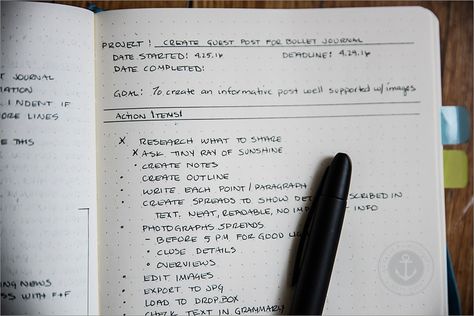 JOURNAL
MATION
I INDENT IF
ORE LINES
THIS
ING NEWS
SS WITH F+F
PROJECT: CREATE GUEST POST FOR BULLET JOURNAL
DATE STARTED: 4.25.16 DEADLINE: 4.29.16
DATE COMPLETED:
GOAL: To create an informative post well supported w/images
ACTION ITEMS:
X RESEARCH WHAT TO SHARE
X ASK TINY RAY OF SUNSHINE
• CREATE NOTES
• CREATE OUTLINE
• WRITE EACH POINT/PARAGRAPH
• CREATE SPREADS TO SHOW DE SCRIBED IN
TEXT. NEAT, READABLE, NO IM INFO
• PHOTOGRAPHS SPREADS
- BEFORE 5 P.M. FOR GOOD
• CLOSE DETAILS
• OVERVIEWS
• EDIT IMAGES
• EXPORT TO JPG
• LOAD TO DROPBOX
• CHECK TEXT IN GRAMMARLY